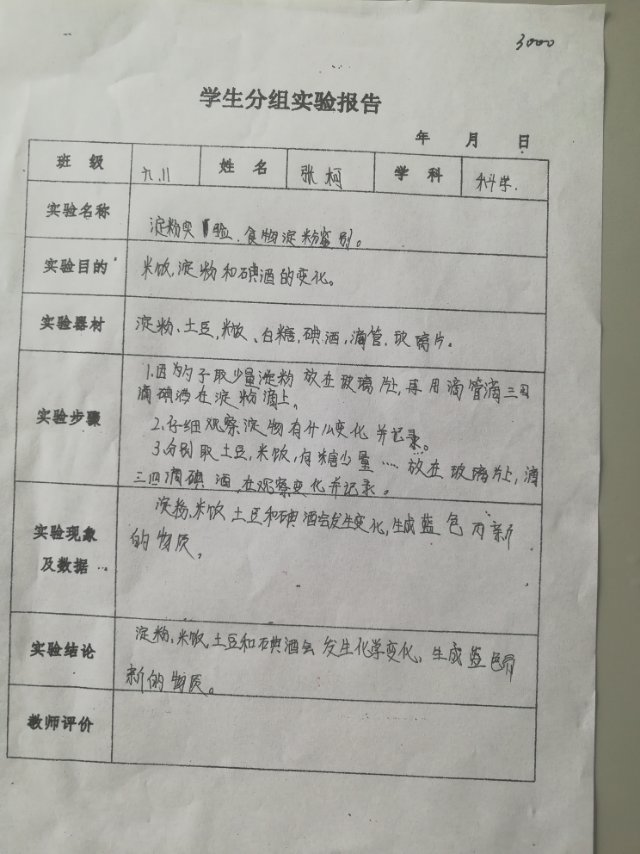 3000
学生分组实验报告
年 月 日
班 级 九.11 姓 名 张柯 学 科 科学.
实验名称 淀粉实验.食物淀粉鉴别。
实验目的 米饭,淀粉和碘酒的变化。
实验器材 淀粉、土豆,米饭、白糖,碘酒,滴管.玻璃片。
实验步骤
1.因为勺子取少量淀粉放在玻璃片上,再用滴管滴三四
滴碘酒在淀粉滴上。
2.仔细观察淀物有什么变化并记录。
3.分别取土豆,米饭,白糖少量……放在玻璃片上,滴
三四滴碘酒,在观察变化并记录。
实验现象
及数据
淀粉,米饭,土豆和碘酒会发生变化,生成蓝色为新
的物质。
实验结论
淀粉,米饭,土豆和碘酒会发生化学变化,生成蓝色
新的物质。
教师评价